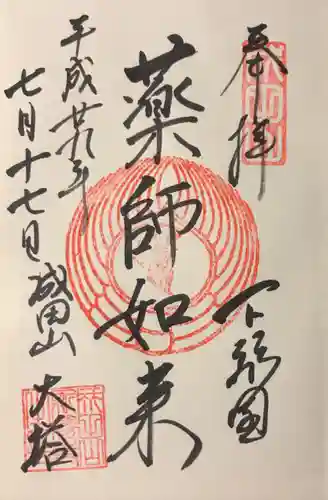 奉拝
下総国
薬師如来
平成廿九年
七月十七日 成田山
大塔